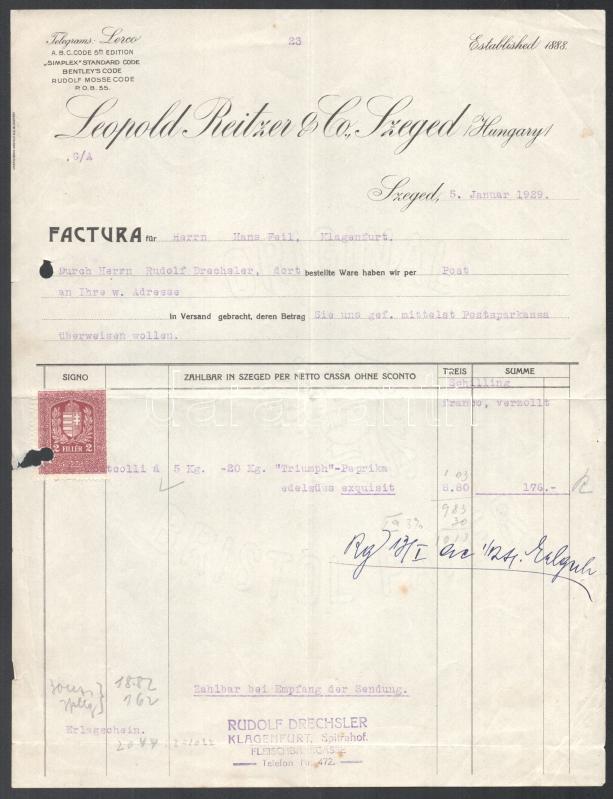 Telegrams: Lerco
A.B.C. CODE 5TH EDITION
„SIMPLEX" STANDARD CODE
BENTLEY'S CODE
RUDOLF MOSSE CODE
P.O.B. 55.
23
Established 1888.
Leopold Reitzer & Co., Szeged (Hungary)
.G/A
Szeged, 5. Januar 1929.
FACTURA für Herrn Hans Feil, Klagenfurt.
Durch Herrn Rudolf Drechsler, dort bestellte Ware haben wir per Post
an Ihre w. Adresse
in Versand gebracht, deren Betrag Sie uns gef. mittelst Postsparkassa
überweisen wollen.
SIGNO ZAHLBAR IN SZEGED PER NETTO CASSA OHNE SCONTO TREIS SUMME
Schilling
franco, verzollt
2 FILLÉR 2
tcolli á 5 Kg. -20 Kg. "Triumph"-Paprika
edelsüss exquisit 8.80 176.-
1 03
983
30
1013
3%
1882
162
Zahlbar bei Empfang der Sendung.
Erlagschein.
RUDOLF DRECHSLER
KLAGENFURT, Spitrahof.
Telefon Nr. 472.
darabanth